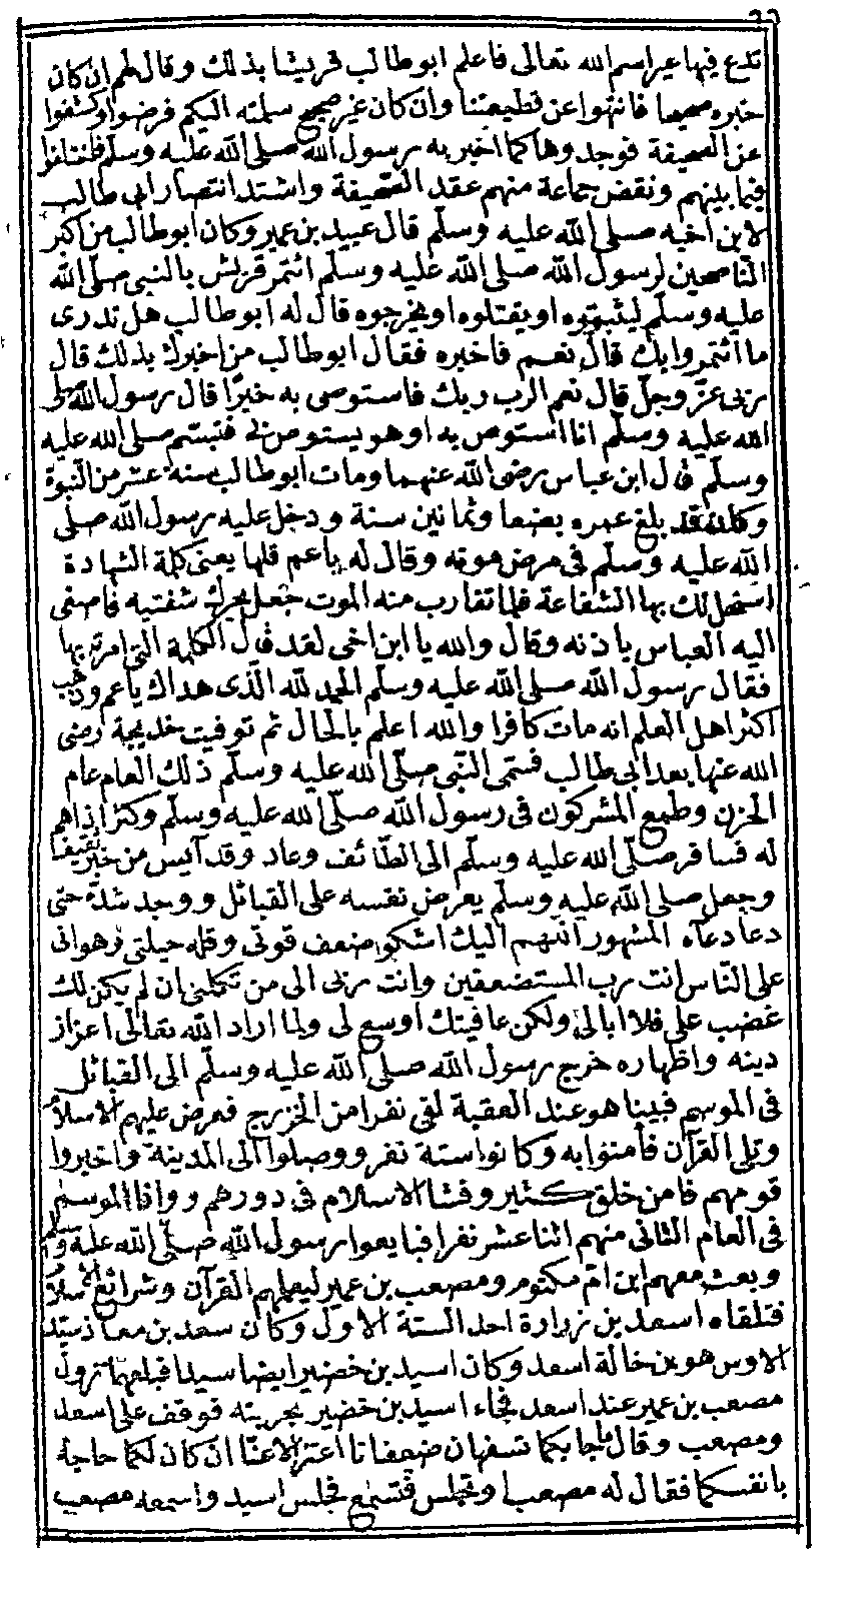 ٦٦
تدع فيها غير اسم الله تعالى فاعلم ابو طالب قريشا بذلك وقال لهم ان كان
خبره صحيحا فانتهوا عن قطيعتنا وان كان غير صحيح سلمته اليكم فرضوا وكشفوا
عن الصحيفة فوجدوها كما اخبر به رسول الله صلى الله عليه وسلم فتناقلوا
فيما بينهم ونقض جماعة منهم عقد الصحيفة واشتد انتصار ابى طالب
لابن اخيه صلى الله عليه وسلم قال عبيد بن عمير وكان ابو طالب من اكبر
الناصحين لرسول الله صلى الله عليه وسلم ائتمر قريش بالنبى صلى الله
عليه وسلم ليثبتوه او يقتلوه او يخرجوه قال له ابو طالب هل تدرى
ما ائتمروا بك قال نعم فاخبره فقال ابو طالب من اخبرك بذلك قال
ربى عز وجل قال نعم الرب ربك فاستوصى به خيرا قال رسول الله صلى
الله عليه وسلم انا استوص به او هو يستوص بى فتبسم صلى الله عليه
وسلم قال ابن عباس رضى الله عنهما ومات ابو طالب سنة عشر من النبوة
وكان قد بلغ عمره بضعا وثمانين سنة ودخل عليه رسول الله صلى
الله عليه وسلم فى مرض موته وقال له يا عم قلها يعنى كلمة الشهادة
استحل لك بها الشفاعة فلما تقارب منه الموت جعل يحرك شفتيه فاصغى
اليه العباس باذنه وقال والله يا ابن اخى لقد قال الكلمة التى امرته بها
فقال رسول الله صلى الله عليه وسلم الحمد لله الذى هداك يا عم وذهب
اكثر اهل العلم انه مات كافرا والله اعلم بالحال ثم توفيت خديجة رضى
الله عنها بعد ابى طالب فسمى النبى صلى الله عليه وسلم ذلك العام عام
الحزن وطمع المشركون فى رسول الله صلى الله عليه وسلم وكثر اذاهم
له فسافر صلى الله عليه وسلم الى الطائف وعاد وقد آيس من خير ثقيف
وجعل صلى الله عليه وسلم يعرض نفسه على القبائل ووجد شدة حتى
دعا دعآه المشهور اللهم اليك اشكو ضعف قوتى وقلة حيلتى وهوانى
على الناس انت رب المستضعفين وانت ربى الى من تكلنى ان لم يكن لك
غضب على فلا ابالى ولكن عافيتك اوسع لى ولما اراد الله تعالى اعزاز
دينه واظهاره خرج رسول الله صلى الله عليه وسلم الى القبائل
فى الموسم فبينا هو عند العقبة لقى نفرا من الخزرج فعرض عليهم الاسلام
وتلى القرآن فأمنوا به وكانوا ستة نفر ووصلوا الى المدينة واخبروا
قومهم فامن خلق كثير وفشا الاسلام فى دورهم ووافا الموسم
فى العام الثانى منهم اثنا عشر نفرا فبايعوا رسول الله صلى الله عليه وسلم
وبعث معهم ابن ام مكتوم ومصعب بن عمير ليعلمهم القرآن وشرائع الاسلام
فتلقاه اسعد بن زرارة احد الستة الاول وكان سعد بن معاذ سيد
الاوس هو بن خالة اسعد وكان اسيد بن خضير ايضا سيدا فبلغهما نزول
مصعب بن عمير عند اسعد فجاء اسيد بن خضير بحربته فوقف على اسعد
ومصعب وقال ما جا بكما تسفهان ضعفانا اعتزلا عنا ان كان لكما حاجة
بانفسكما فقال له مصعب او تجلس فتسمع فجلس اسيد واسمعه مصعب